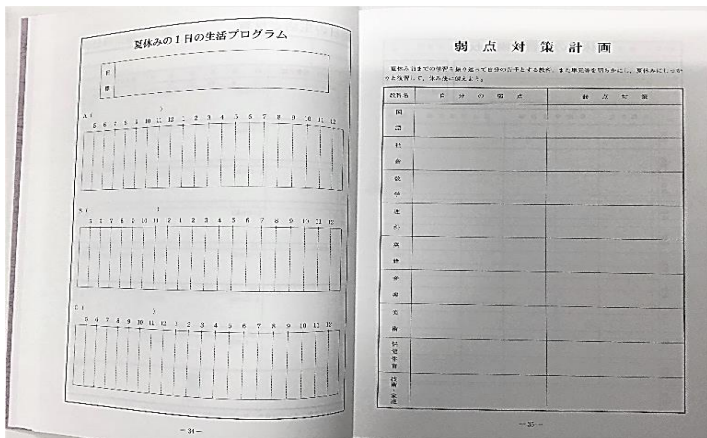 夏休みの1日の生活プログラム
目標
A（　　　　　）
5 6 7 8 9 10 11 12 1 2 3 4 5 6 7 8 9 10 11 12
B（　　　　　）
5 6 7 8 9 10 11 12 1 2 3 4 5 6 7 8 9 10 11 12
C（　　　　　）
5 6 7 8 9 10 11 12 1 2 3 4 5 6 7 8 9 10 11 12
―34―
弱点対策計画
夏休み前までの学習を振り返って自分の苦手とする教科、また単元等を明らかにし、夏休みにしっか
りと復習して、休み後に備えよう。
教科名 自分の弱点 弱点対策
国語
社会
数学
理科
英語
音楽
美術
保健体育
技術・家庭
―35―